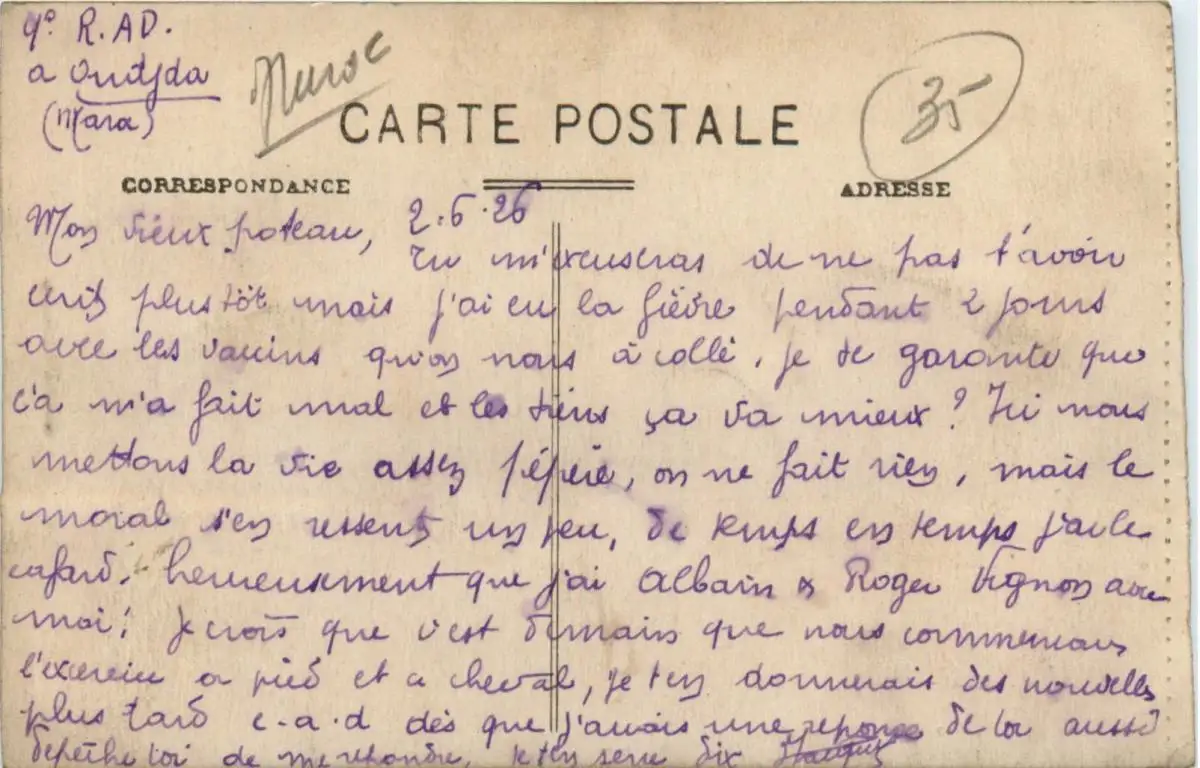 9e R.A.D.
a Oudjda
(Mara)
Maroc
35
CARTE POSTALE
CORRESPONDANCE
ADRESSE
Mon vieux poteau, 2.6.26
Tu m'excuseras de ne pas t'avoir
ecrit plus tôt mais j'ai eu la fièvre pendant 2 jours
avec les vaccins qu'on nous à collé, je te garantie que
c'a m'a fait mal et les tiens ça va mieux ? Ici nous
mettons la vie assez pépère, on ne fait rien, mais le
moral s'en ressent un peu, de temps en temps j'ai le
cafard, heureusement que j'ai Albain & Roger Vignon avec
moi! Je crois que c'est demain que nous commencons
l'exercice a pied et a cheval, je t'en donnerais des nouvelles
plus tard c-a-d dès que j'aurais une reponse de toi aussi
depêche toi de me repondre, je t'en serre dix